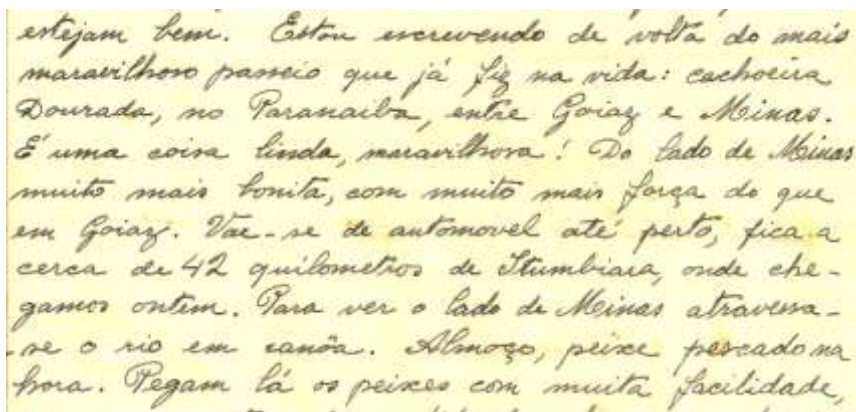 estejam bem. Estou escrevendo de volta do mais
maravilhoso passeio que já fiz na vida: cachoeira
Dourada, no Paranaiba, entre Goiaz e Minas.
É uma coisa linda, maravilhosa! Do lado de Minas
muito mais bonita, com muito mais força do que
em Goiaz. Vae-se de automovel até perto, fica a
cerca de 42 quilometros de Itumbiara, onde che-
gamos ontem. Para ver o lado de Minas atravessa-
-se o rio em canôa. Almoço, peixe pescado na
hora. Pegam lá os peixes com muita facilidade,